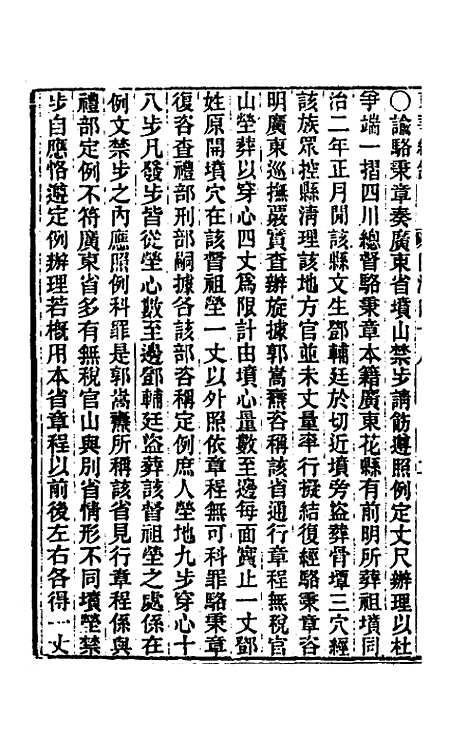 ○諭駱秉章奏廣東省墳山禁步請飭遵照例定丈尺辦理以杜
爭端一摺四川總督駱秉章本籍廣東花縣有前明所葬祖墳同
治二年正月閒該縣文生鄧輔廷於切近墳旁盜葬骨壜三穴經
該族眾控縣淸理該地方官並未丈量率行擬結復經駱秉章咨
明廣東巡撫嚴實查辦旋據郭嵩燾咨稱該省通行章程無稅官
山塋葬以穿心四丈爲限計由墳心量數至邊每面實止一丈鄧
姓原開墳穴在該督祖塋一丈以外照依章程無可科罪駱秉章
復咨查禮部刑部嗣據各該部咨稱定例庶人塋地九步穿心十
八步凡發步皆從塋心數至邊鄧輔廷盜葬該督祖塋之處係在
例文禁步之內應照例科罪是郭嵩燾所稱該省見行章程係與
禮部定例不符廣東省多有無稅官山與別省情形不同墳塋禁
步自應恪遵定例辦理若槪用本省章程以前後左右各得一丈